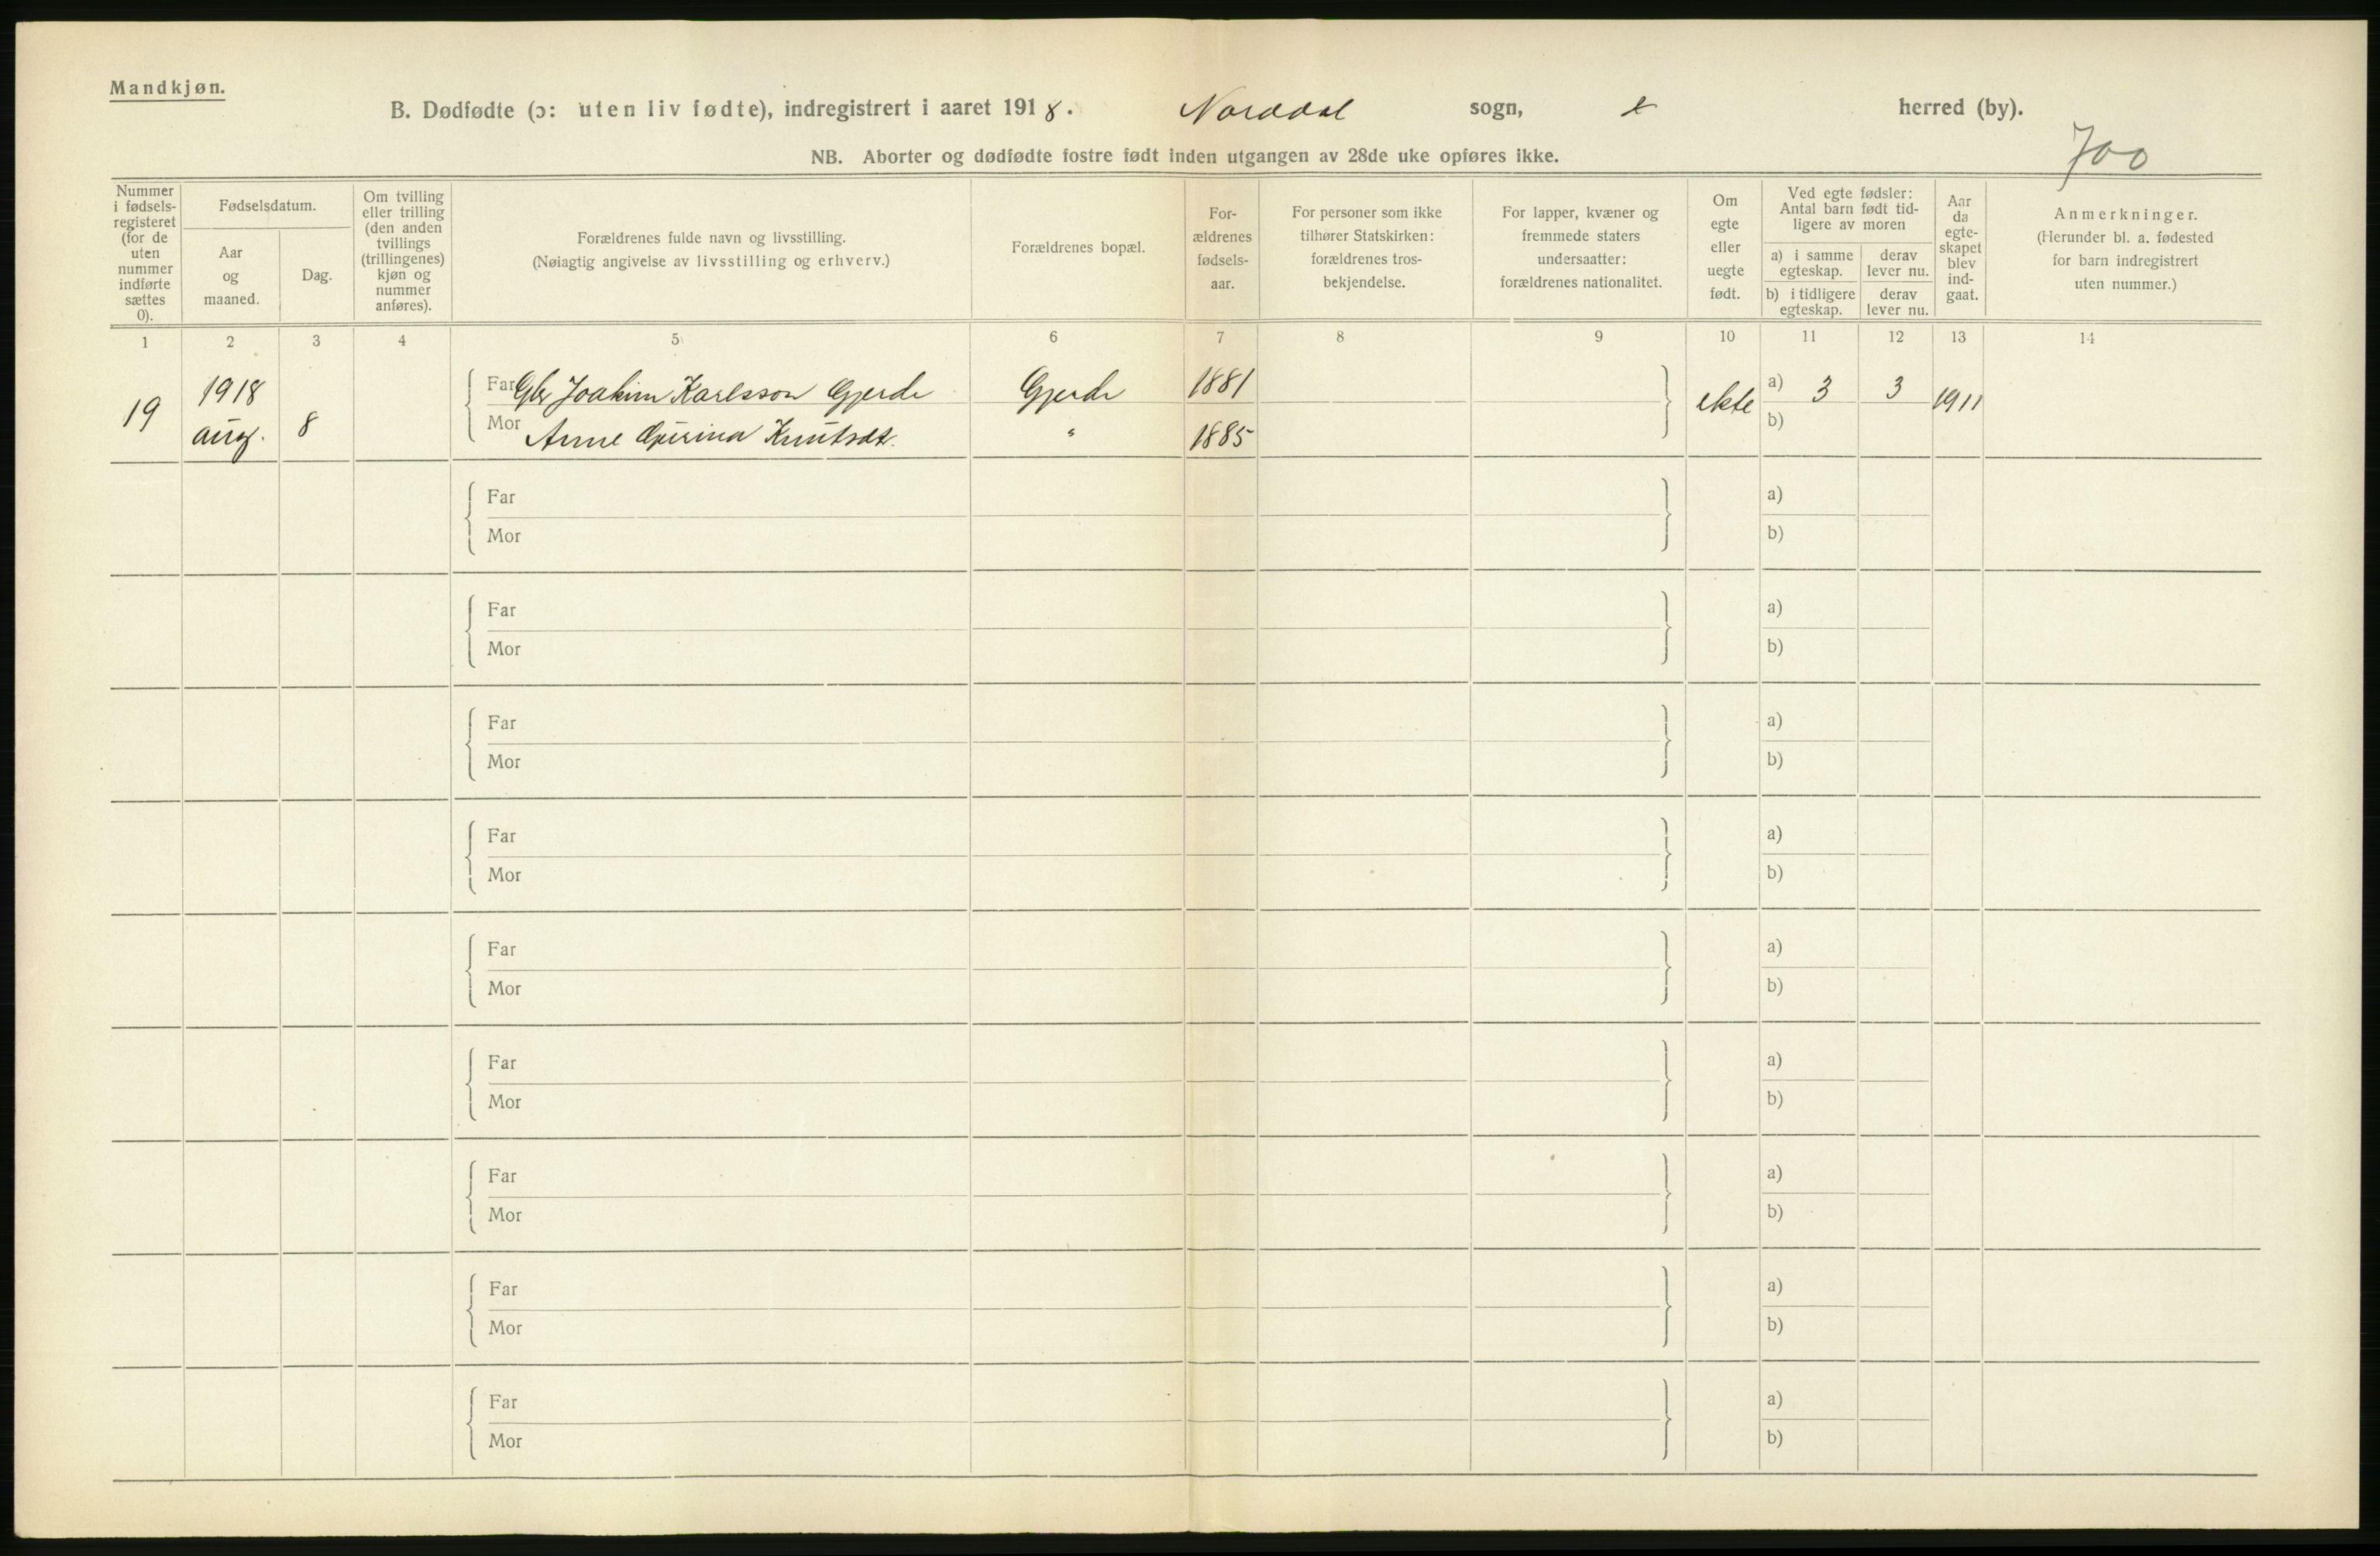 Mandkjøn.
B. Dødfødte (ɔ: uten liv fødte), indregistrert i aaret 1918. Norddal sogn, herred (by).
700
NB. Aborter og dødfødte fostre født inden utgangen av 28de uke opføres ikke.
Nummer i fødsels-registeret (for de uten nummer indførte sættes 0).
Fødselsdatum.
Aar og maaned.
Dag.
Om tvilling eller trilling (den anden tvillings (trillingenes) kjøn og nummer anføres).
Forældrenes fulde navn og livsstilling.
(Nøiagtig angivelse av livsstilling og erhverv.)
Forældrenes bopæl.
For-ældrenes fødsels-aar.
For personer som ikke tilhører Statskirken: forældrenes tros-bekjendelse.
For lapper, kvæner og fremmede staters undersaatter: forældrenes nationalitet.
Om egte eller uegte født.
Ved egte fødsler: Antal barn født tid-ligere av moren
a) i samme egteskap.
derav lever nu.
b) i tidligere egteskap.
derav lever nu.
Aar da egte-skapet blev ind-gaat.
Anmerkninger.
(Herunder bl. a. fødested for barn indregistrert uten nummer.)
1 2 3 4 5 6 7 8 9 10 11 12 13 14
19 1918 aug. 8
Far Gbr Joakim Karlsson Gjerde Gjerde 1881 ekte a) 3 3 1911
Mor Anne Knutsdt. " 1885 b)
Far a)
Mor b)
Far a)
Mor b)
Far a)
Mor b)
Far a)
Mor b)
Far a)
Mor b)
Far a)
Mor b)
Far a)
Mor b)
Far a)
Mor b)
Far a)
Mor b)